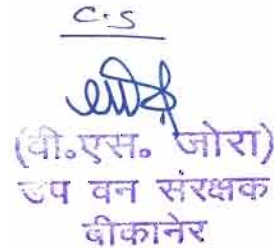 C.S
(वी.एस. जोरा)
उप वन संरक्षक
बीकानेर